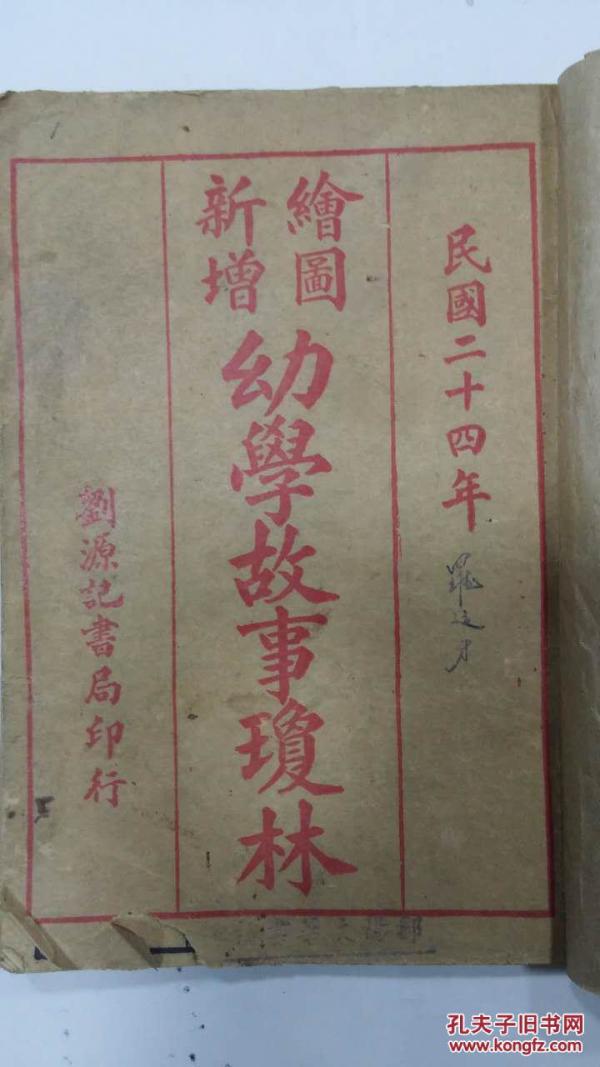 民國二十四年
繪圖
新增
幼學故事瓊林
劉源記書局印行
孔夫子旧书网
www.kongfz.com